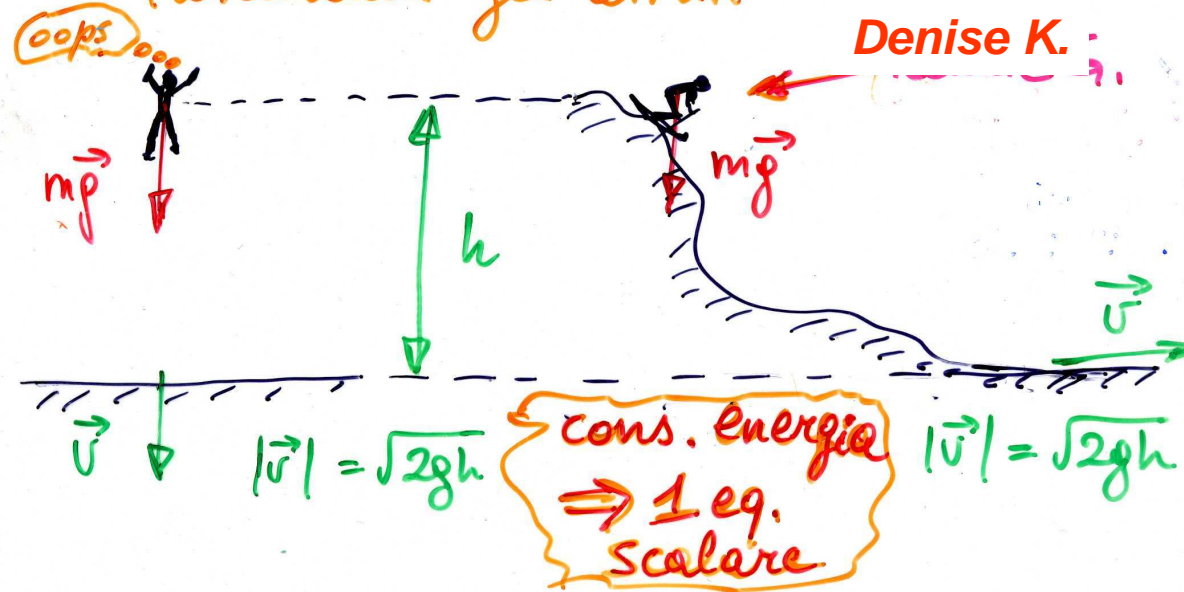 oops
Denise K.
mg
mg
h
v
v
|v| = √2gh
cons. energia
⇒ 1 eq.
scalare
|v| = √2gh